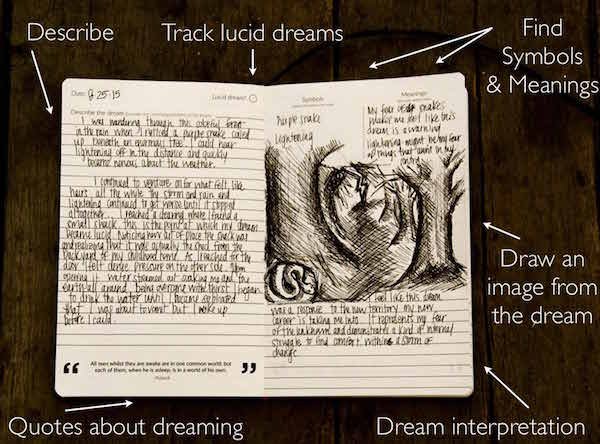 Describe
Track lucid dreams
Find
Symbols
& Meanings
Date: 8-25-15
Lucid dream?
Describe the dream
I was wandering through this colorful forest
in the rain when I noticed a purple snake coiled
up beneath an enormous tree. I could hear
lightening off in the distance and quickly
became nervous about the weather.
I continued to venture on for what felt like
hours, all the while the storm and rain and
lightening continued to get worse until it stopped
alltogether. I reached a clearing where I found a
small shack. This is the point at which my dream
became lucid. Noticing how out of place the shack was
and realizing that it was actually the shed from the
backyard of my childhood home. As I reached for the
door I felt dense pressure on the other side. Upon
opening it water streamed out soaking me and the
earth all around. Being overcome with thirst I began
to drink the water until I became so
that I was about to vomit but I woke up
before I could.
All men whilst they are awake are in one common world: but
each of them, when he is asleep, is in a world of his own.
Plutarch
Symbols
Purple snake
Lightening
Meanings
My fear of snakes
makes me feel like this
dream is a warning
lightening might be my fear
of things that aren't in my
control
I feel like this dream
was a response to the new territory my new
career is taking me into. It represents my fear
of the unknown and demonstrates a kind of internal
struggle to find comfort within a storm of
change.
Draw an
image from
the dream
Quotes about dreaming
Dream interpretation